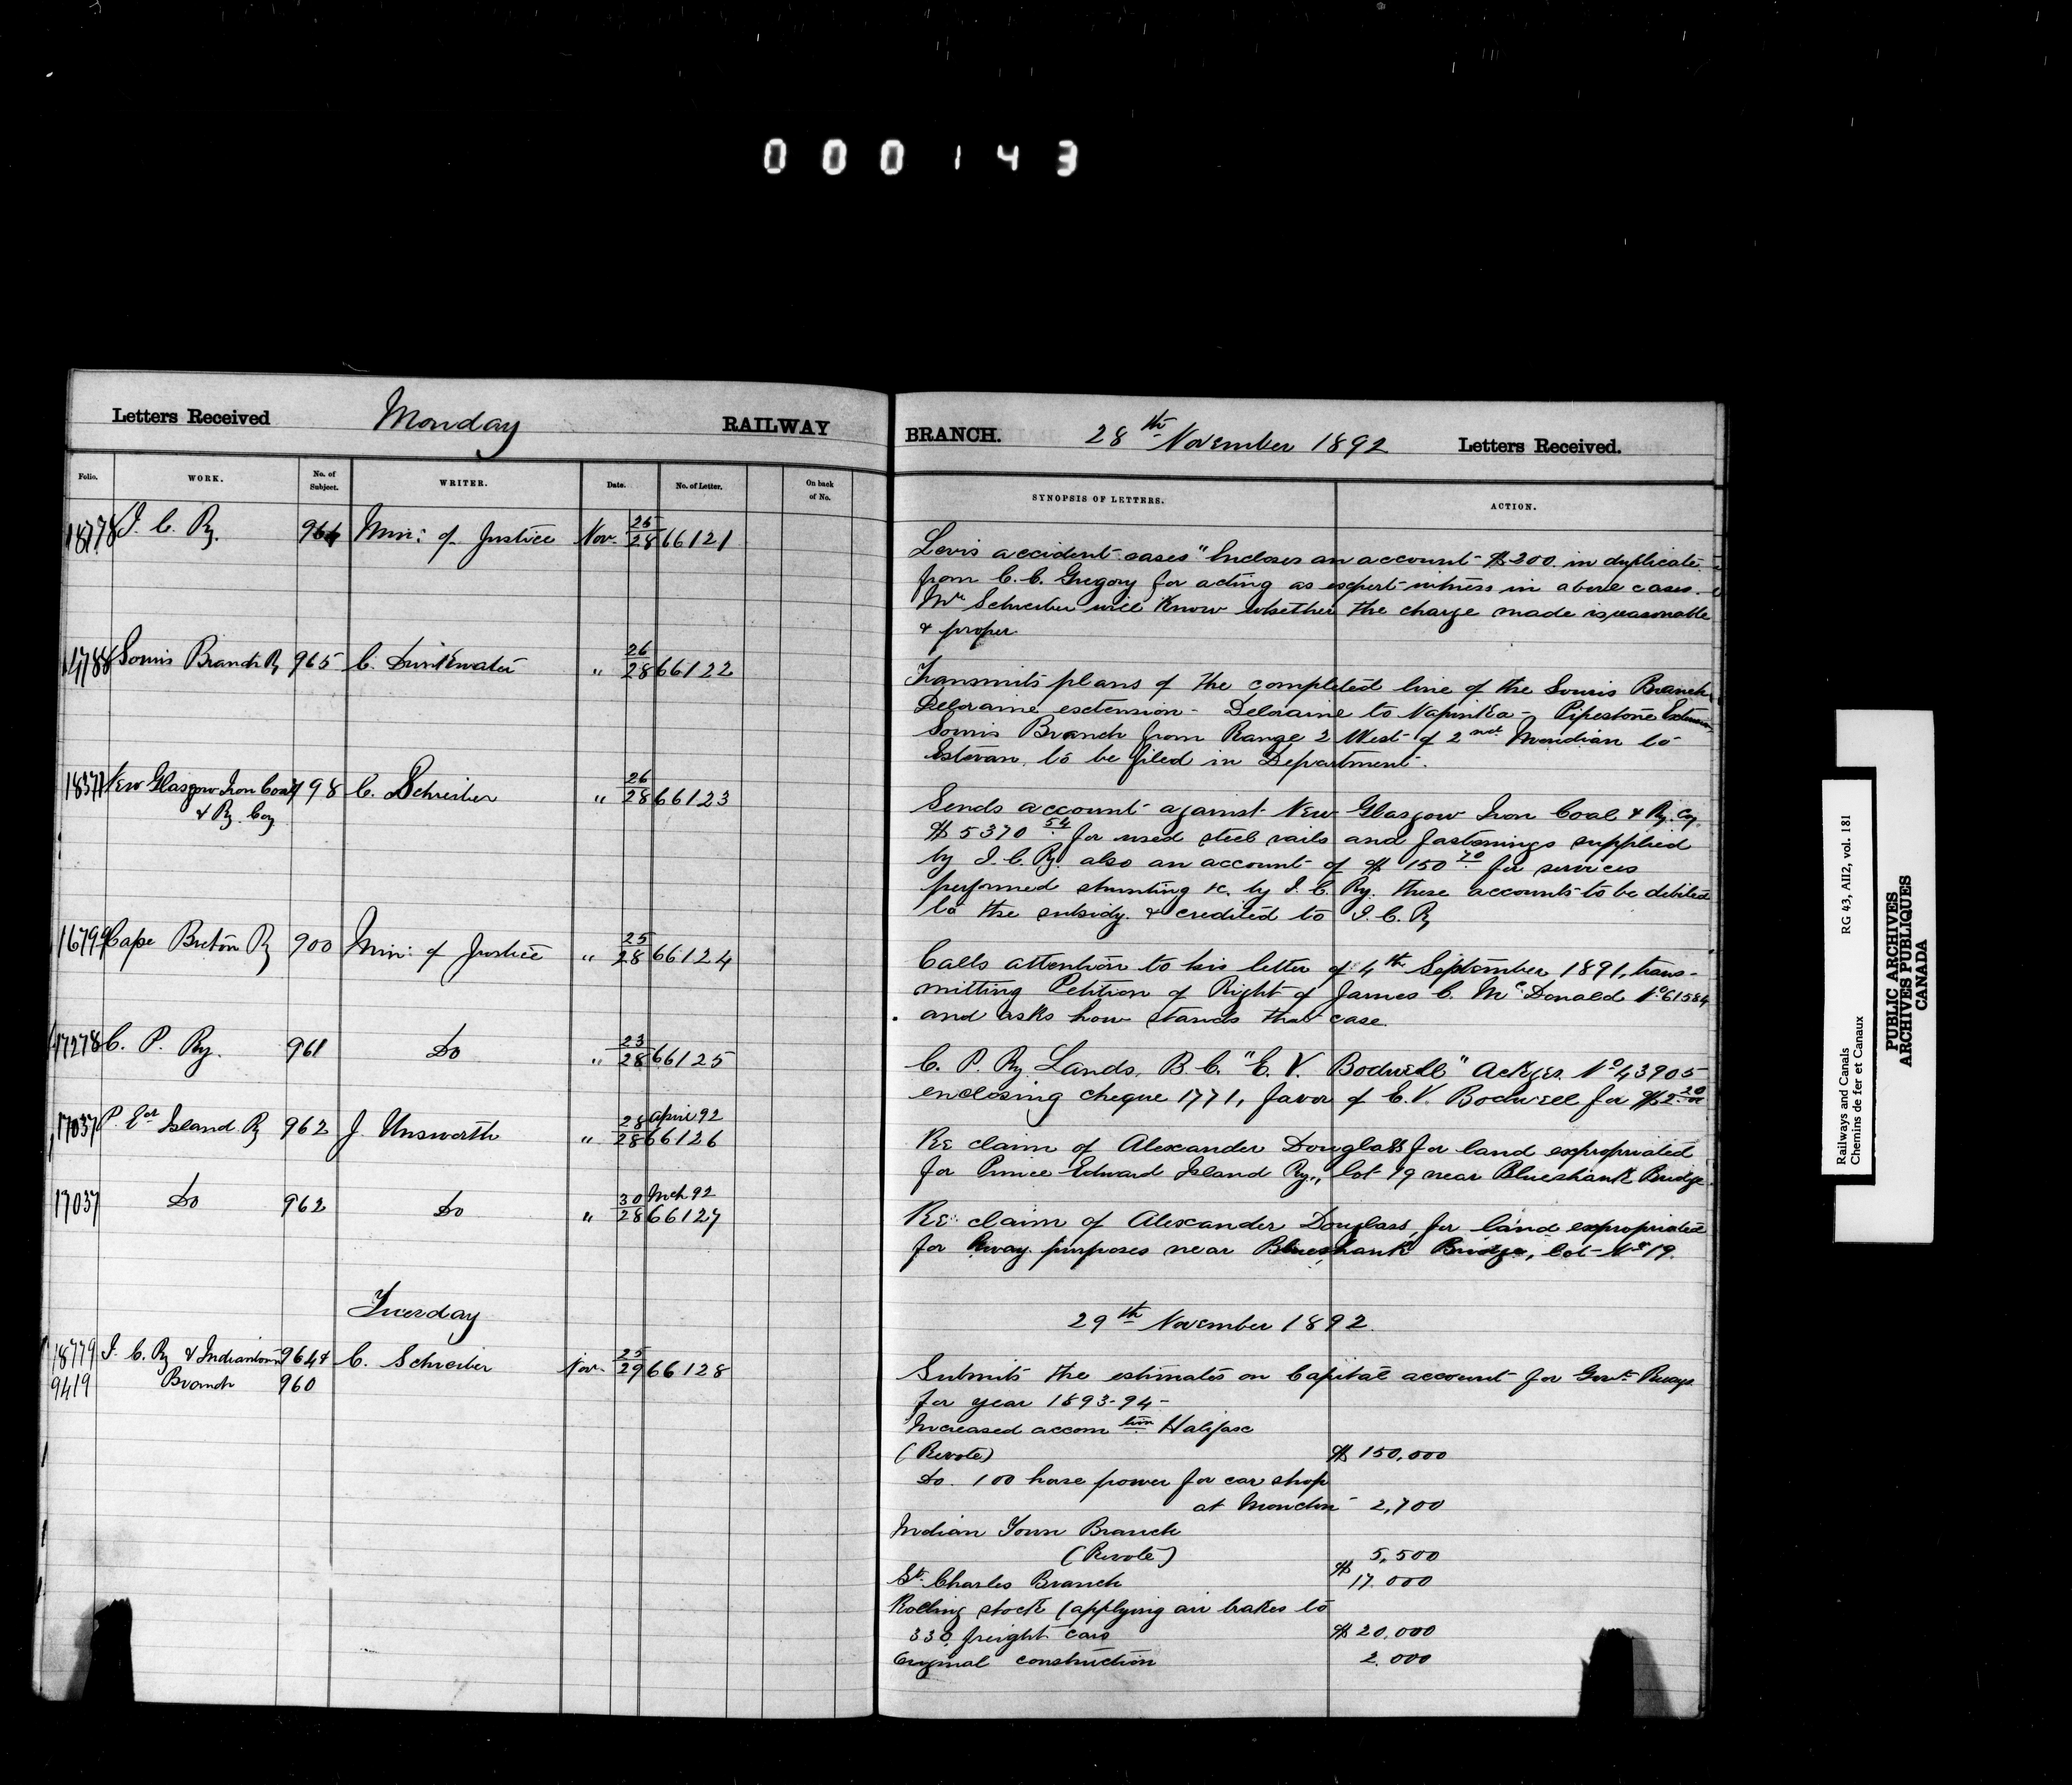 0 0 0 1 4 3
Letters Received Monday RAILWAY
Folio. WORK. No. of Subject. WRITER. Date. No. of Letter. On back of No.
18778 I. C. Ry. 964 Min: of Justice Nov. 25/28 66121
14788 Souris Branch Ry 965 C. Drinkwater " 26/28 66122
18371 New Glasgow Iron Coal 798 C. Schreiber " 26/28 66123
& Ry. Coy
16799 Cape Breton Ry 900 Min: of Justice " 25/28 66124
17278 C. P. Ry. 961 Do " 23/28 66125
17037 P. Ed Island Ry 962 J. Unsworth " 28 April 92/28 66126
17037 Do 962 Do " 30 Mch 92/28 66127
Tuesday
18779 I. C. Ry & Indiantown 964 & C. Schreiber Nov. 25/29 66128
9419 Branch 960
BRANCH. 28th November 1892 Letters Received.
SYNOPSIS OF LETTERS. ACTION.
Levis accident cases" Incloses an account $200. in duplicate
from C. C. Gregory for acting as expert witness in above cases.
Mr Schreiber will know whether the charge made is reasonable
& proper.
Transmits plans of the completed line of the Souris Branch
Deloraine extension - Deloraine to Napinka - Pipestone Extension
Souris Branch from Range 2 West of 2nd Meridian to
Estevan, to be filed in Department.
Sends account against New Glasgow Iron Coal & Ry. Cy.
$5370 54 for used steel rails and fastenings supplied
by I. C. Ry. also an account of $150 70 for services
performed shunting &c. by I. C. Ry. these accounts to be debited
to the subsidy & credited to I. C. Ry
Calls attention to his letter of 4th September 1891, trans-
mitting Petition of Right of James C. McDonald No 61584
and asks how stands that case.
C. P. Ry Lands. B. C. "E. V. Bodwell" Ackges. No 43905
enclosing cheque 1771, favor of E. V. Bodwell for $2.20
Re claim of Alexander Douglass for land expropriated
for Prince Edward Island Ry., lot 19 near Blueshank Bridge.
Re: claim of Alexander Douglass, for land expropriated
for Rway. purposes near Blueshank Bridge, lot No 19.
29th November 1892.
Submits the estimates on Capital account for Govt. Rways
for year 1893-94-
Increased accom tion Halifax
(Revote) $ 150,000
Do. 100 horse power for car shop
at Moncton - 2,700
Indian Town Branch
(Revote) 5,500
St. Charles Branch $ 17.000
Rolling stock (applying air brakes to
330 freight cars $ 20,000
Original construction 2.000
Railways and Canals RG 43, AII2, vol. 181
Chemins de fer et Canaux
PUBLIC ARCHIVES
ARCHIVES PUBLIQUES
CANADA